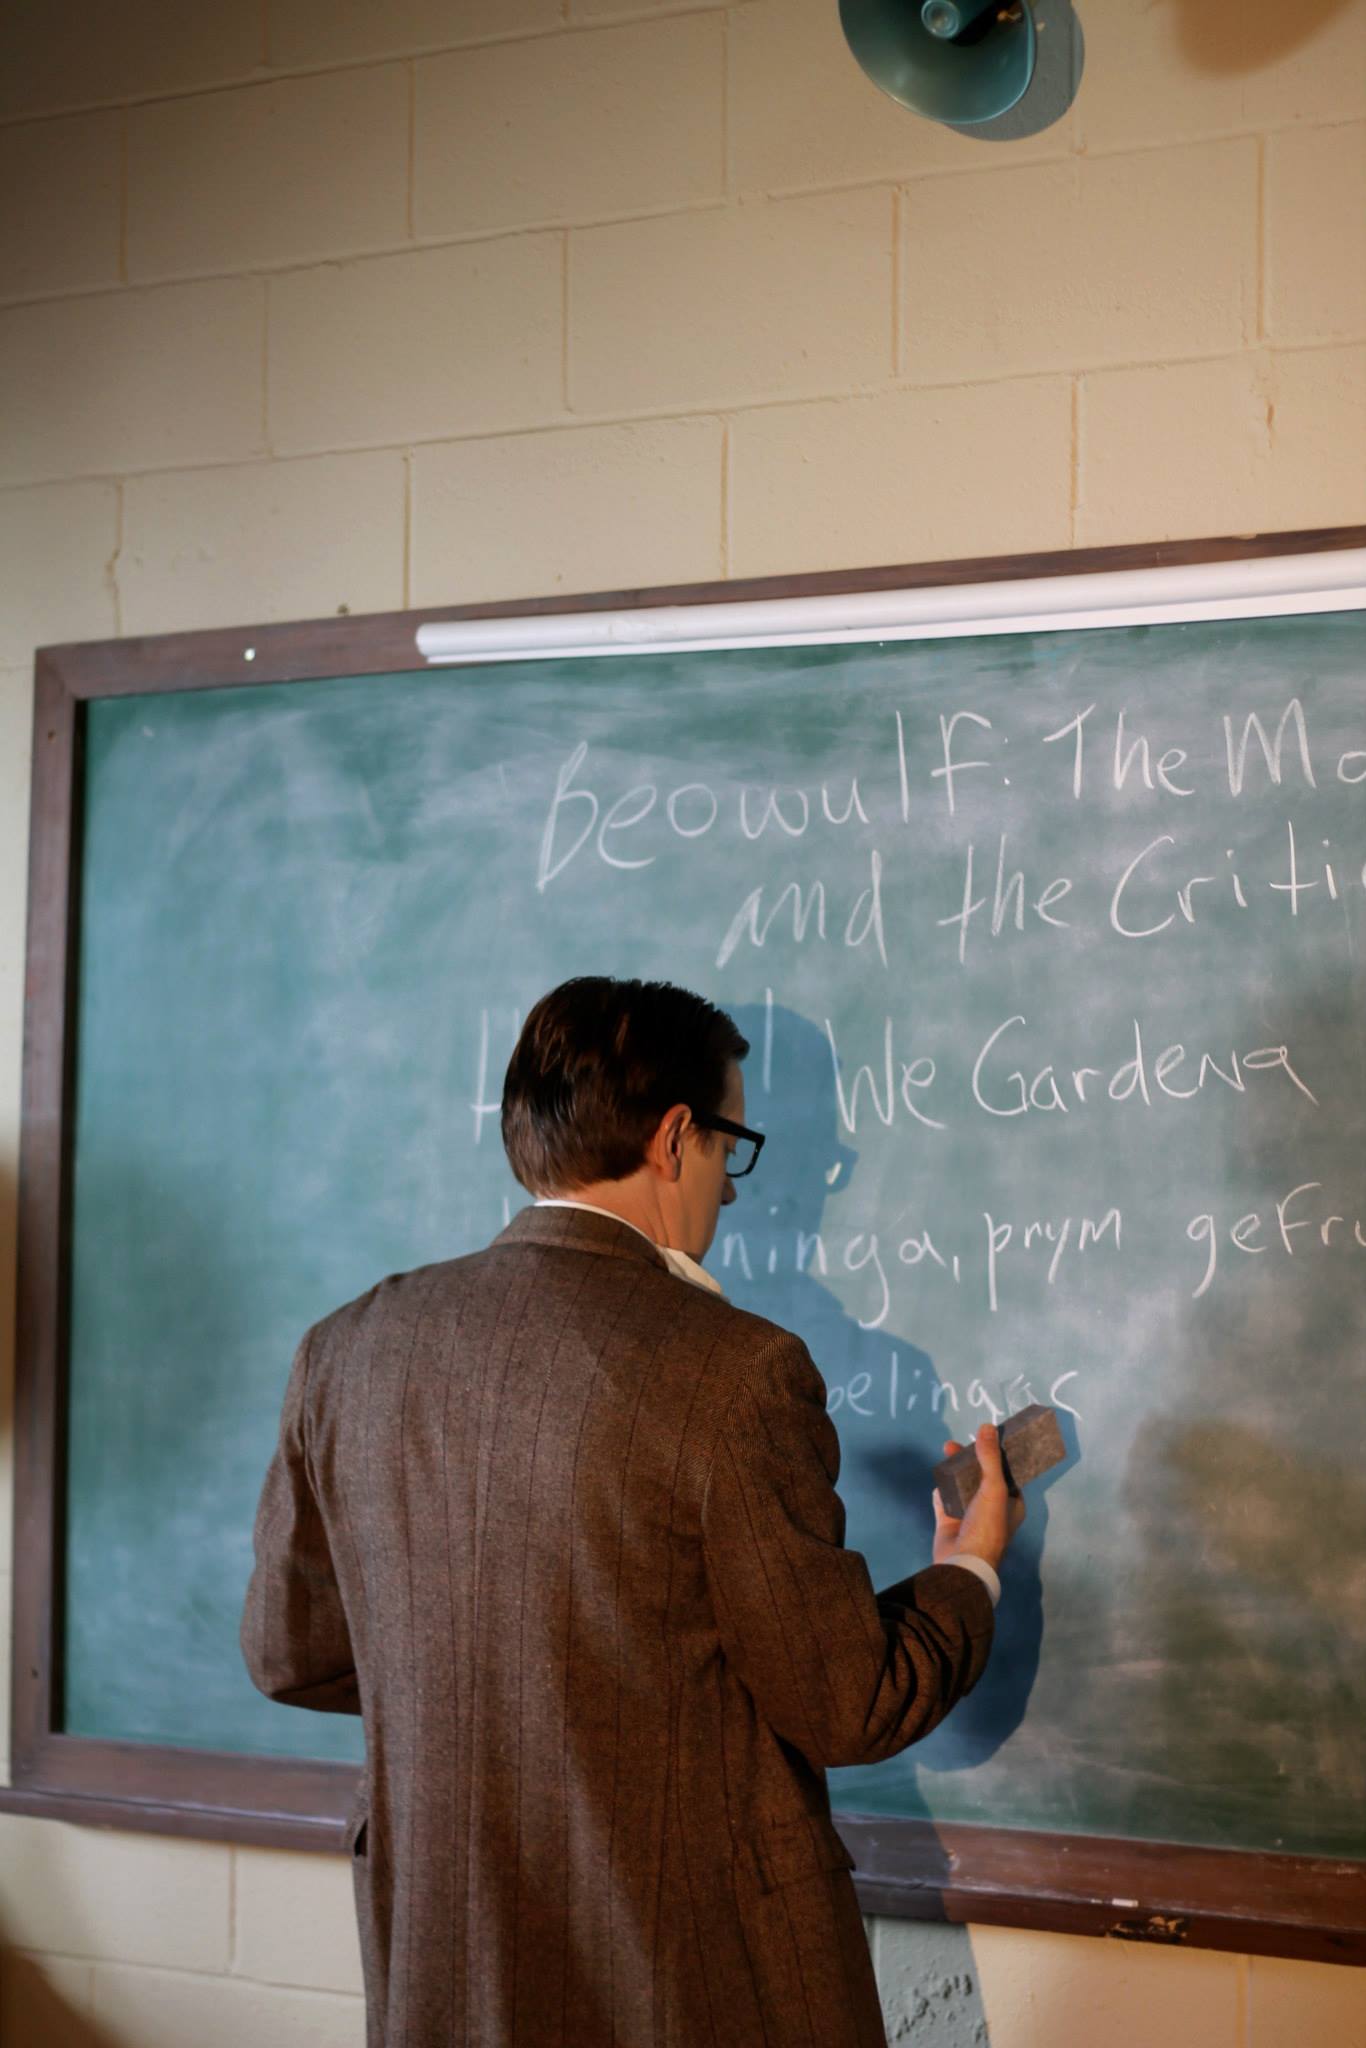 Beowulf: The Mo
and the Criti
H ! We Gardena
ninga, prym gefru
belingas